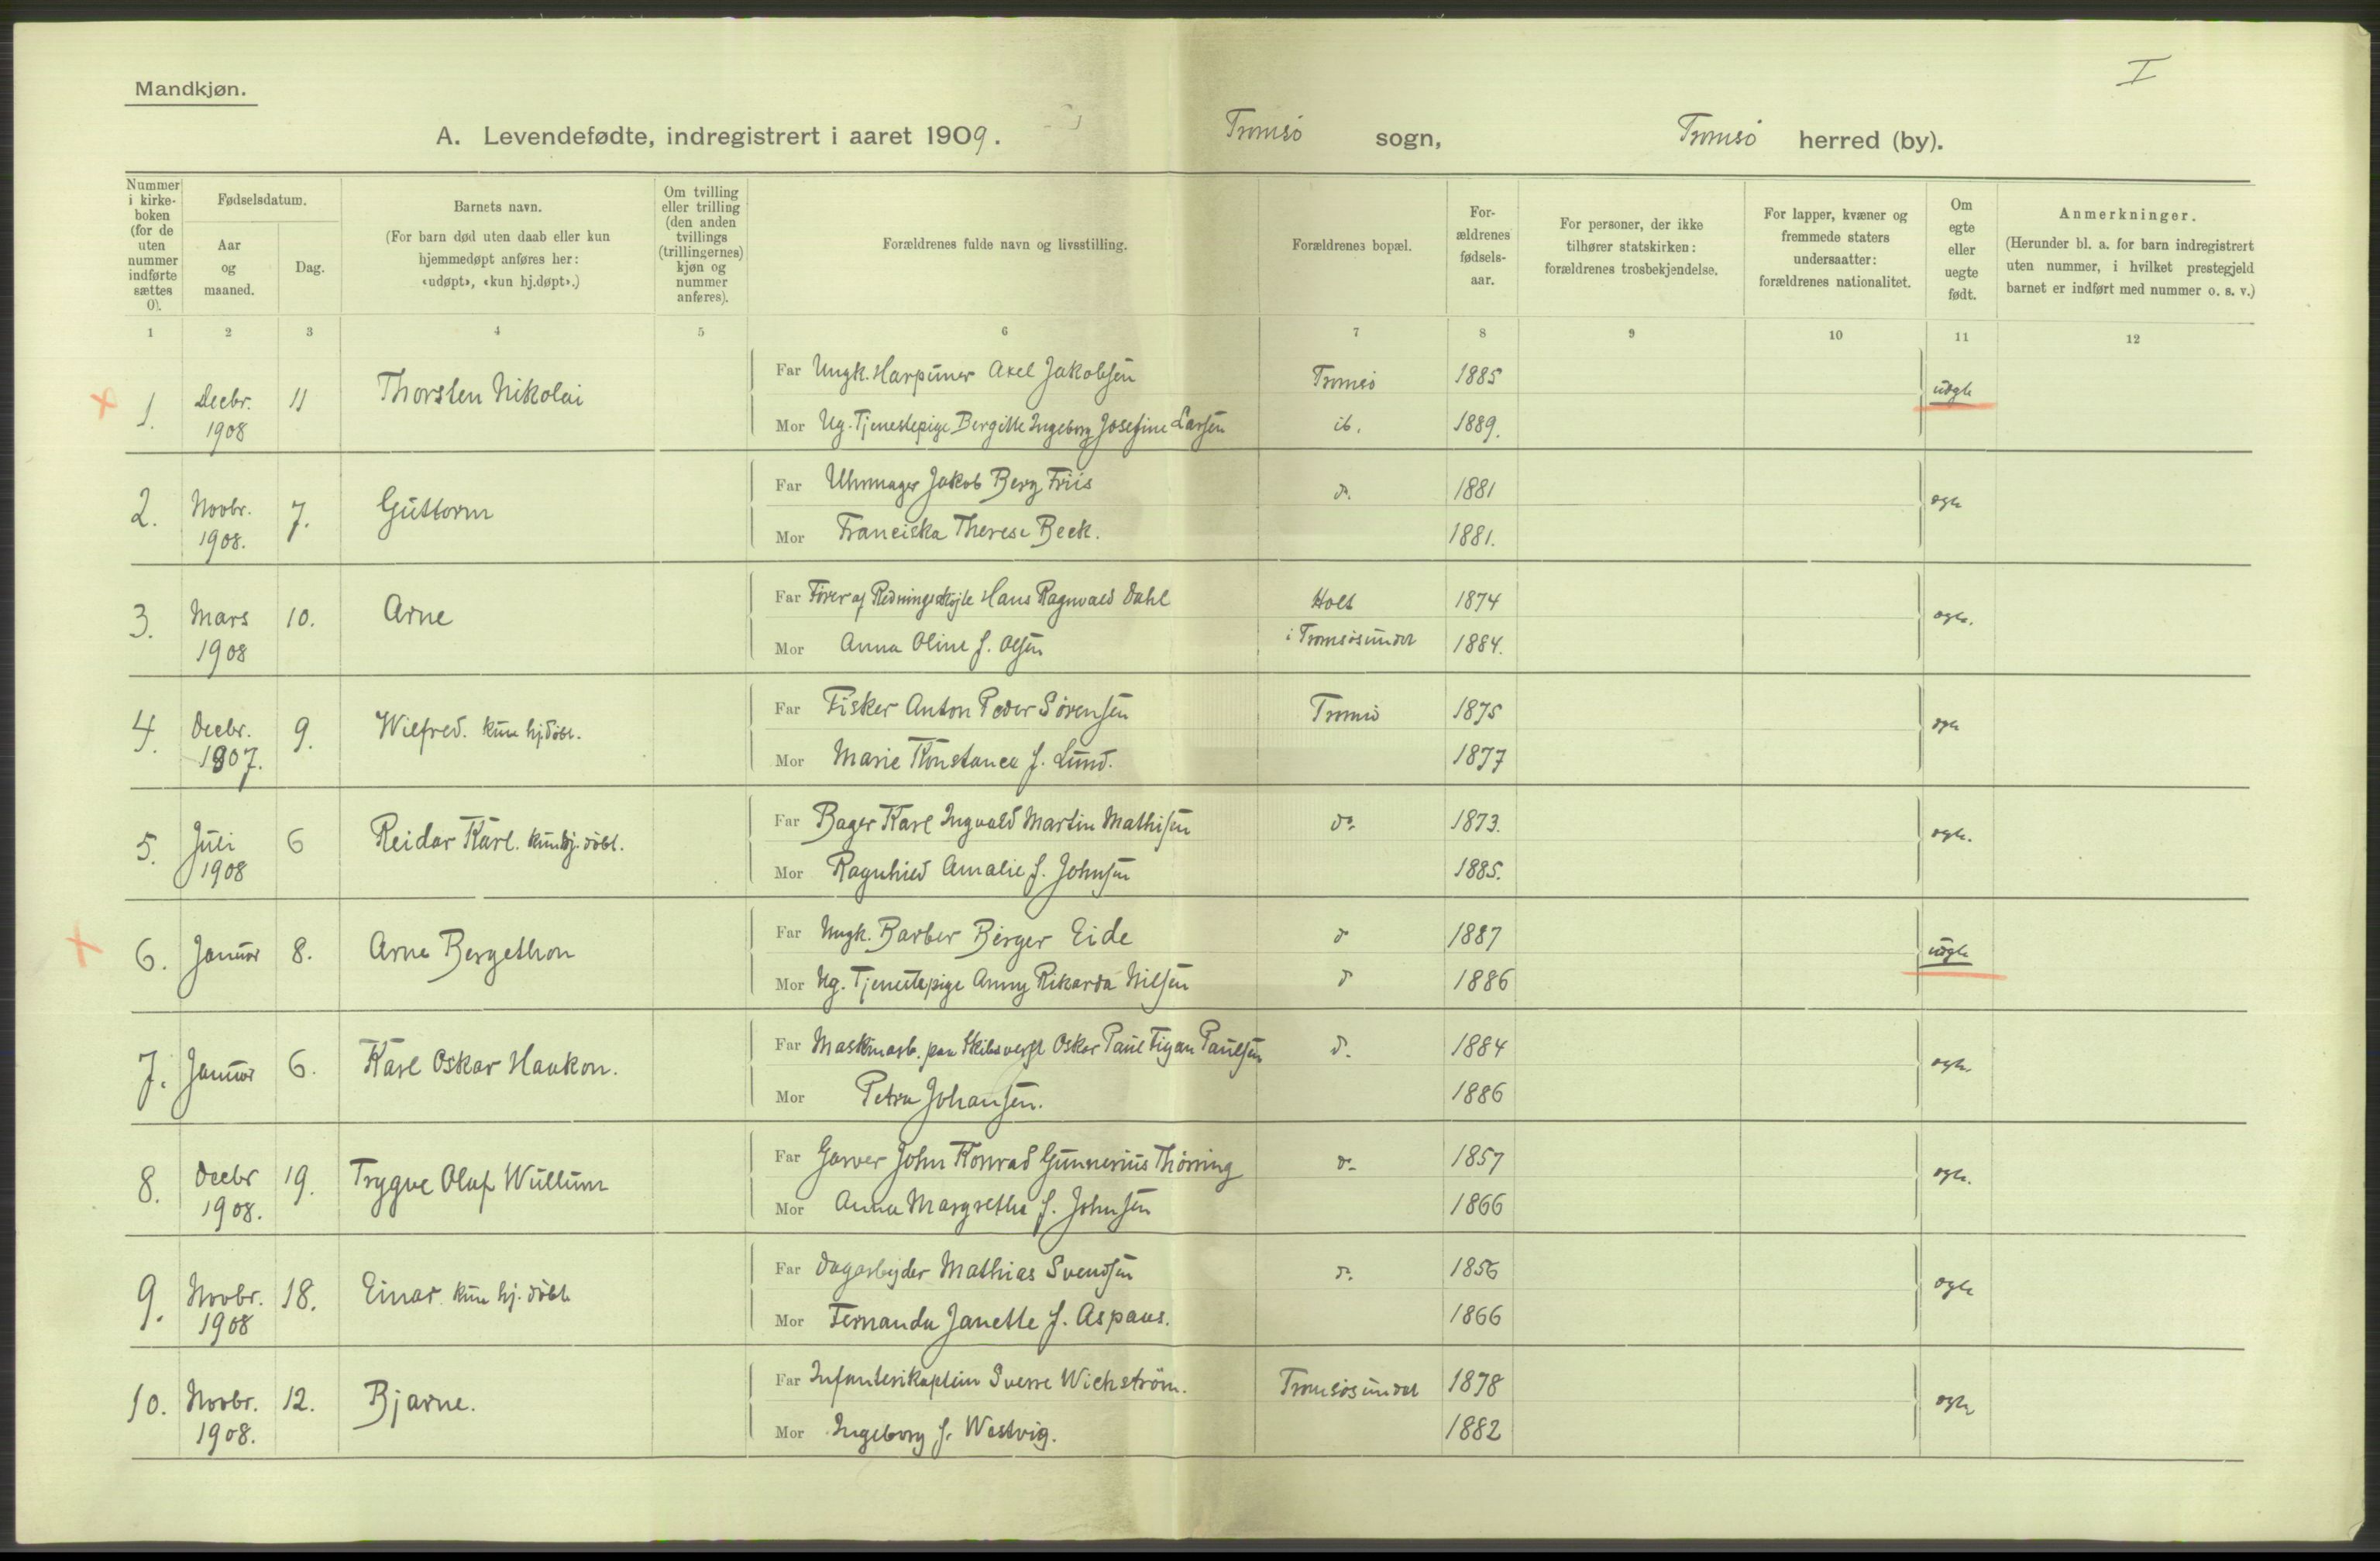 I
Mandkjøn.
A. Levendefødte, indregistrert i aaret 1909. Tromsø sogn, Tromsø herred (by).
Nummer i kirkeboken (for de uten nummer indførte sættes 0).
Fødselsdatum.
Aar og maaned.
Dag.
Barnets navn.
(For barn død uten daab eller kun hjemmedøpt anføres her: «udøpt», «kun hj.døpt».)
Om tvilling eller trilling (den anden tvillings (trillingernes) kjøn og nummer anføres).
Forældrenes fulde navn og livsstilling.
Forældrenes bopæl.
Forældrenes fødselsaar.
For personer, der ikke tilhører statskirken: forældrenes trosbekjendelse.
For lapper, kvæner og fremmede staters undersaatter: forældrenes nationalitet.
Om egte eller uegte født.
Anmerkninger.
(Herunder bl. a. for barn indregistrert uten nummer, i hvilket prestegjeld barnet er indført med nummer o. s. v.)
1 2 3 4 5 6 7 8 9 10 11 12
Far Ungk. Harpuner Axel Jakobsen Tromsø 1885
1. Decbr. 11 Thorsten Nikolai uegte
1908
Mor Ug. Tjenestepige Bergitte Ingeborg Josefine Larsen ib. 1889.
Far Uhrmager Jakob Berg Friis do. 1881
2. Novbr. 7. Guttorm egte
1908.
Mor Franciska Therese Beck. 1881.
Far Fører af Redningsskøjte Hans Ragnvald Dahl Holt 1874
3. Mars 10. Arne egte.
1908
Mor Anna Oline f. Olsen i Tromsøsundet 1884.
Far Fisker Anton Peder Sørensen Tromsø 1875
4. Decbr. 9. Wilfred. kun hj.døbt. egte
1907.
Mor Marie Konstance f. Lund. 1877
Far Bager Karl Ingvald Martin Mathisen do. 1873.
5. Juli 6 Reidar Karl. kun hj. døbt. egte.
1908
Mor Ragnhild Amalie f. Johnsen 1885.
Far Ungk. Barber Birger Eide d 1887
6. Januar 8. Arne Bergethon uegte
Mor Ug. Tjenestepige Anny Rikarda Nilsen d 1886
Far Maskinarb. paa Skibsverft Oskar Paul Paulsen d. 1884
7. Januar 6. Karl Oskar Haakon. egte.
Mor Petra Johansen. 1886
Far Garver John Konrad Gunnerius Thørring do. 1857
8. Decbr 19. Trygve Olaf Wullum egte.
1908.
Mor Anna Margrethe f. Johnsen 1866
Far Dagarbejder Mathias Svendsen do. 1856
9. Novbr. 18. Einar. kun hj. døbt egte
1908
Mor Fernanda Janette f. Aspaas. 1866
Far Infanterikaptein Sverre Wickstrøm. Tromsøsundet 1878
10. Novbr. 12. Bjarne. egte
1908.
Mor Ingeborg f. Westvig. 1882